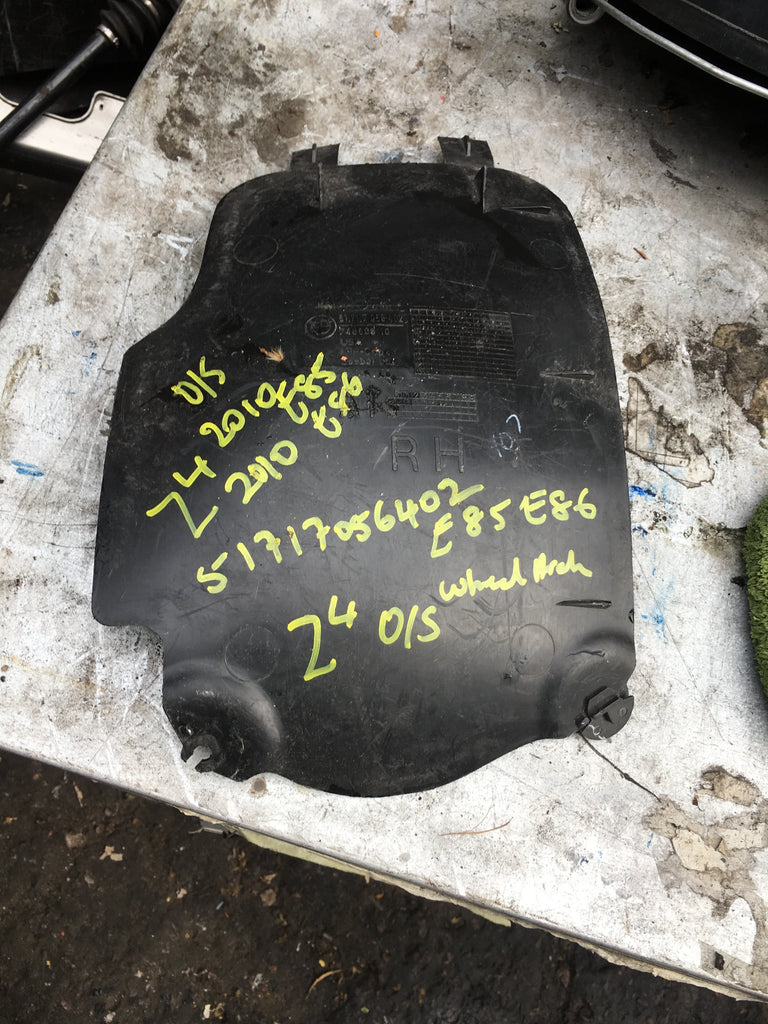 O/S
2010 E85
Z4 2010 E86
RH
51717056402
E85 E86
Wheel Arch
Z4 O/S